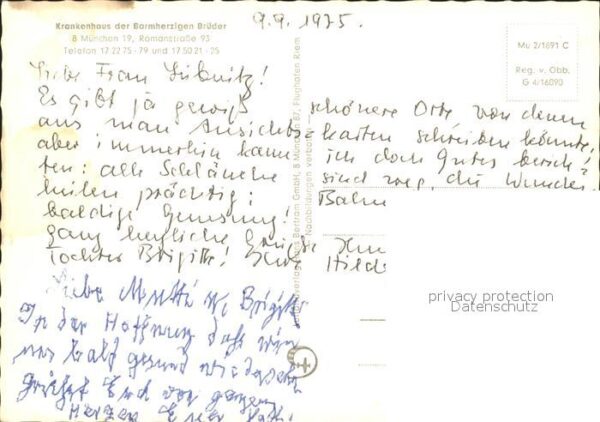 9.9.1975.
Krankenhaus der Barmherzigen Brüder
8 München 19, Romanstraße 93
Telefon 17 22 75 - 79 und 17 50 21 - 25
Mü 2/1691 C
Reg. v. Obb.
G 4/16093
Liebe Frau
Es gibt ja gewiß schönere Orte, von denen
aus man Ansichts=karten schreiben könnte,
aber immerhin kann ich doch Gutes
ten: alle Schläuche sind weg, die Wunden
heilen prächtig: Bahn
baldige Genesung!
ganz herzliche Grüße
Tochter Brigitte! Hild
Liebe Mutti u. Brigitte
In der Hoffnung daß wir
uns bald gesund wiedersehn
grüßt Euch von ganzem
Herzen Euer
privacy protection
Datenschutz